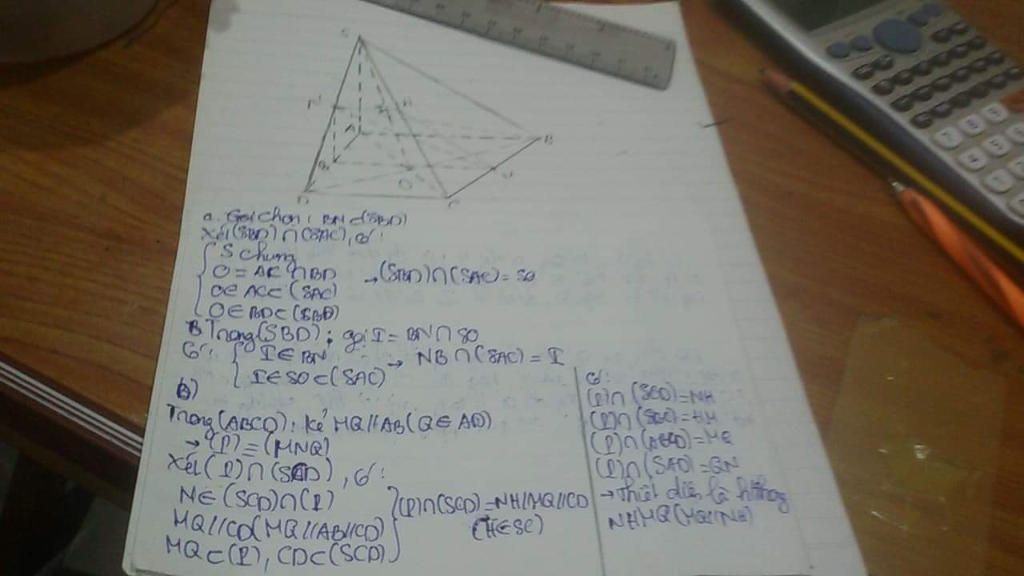 S
N
H
A
B
Q
M
O
D
C
a. Gọi chọn: BN ⊂ (SBD)
Xét (SBD) ∩ (SAC), có:
S chung
O = AC ∩ BD
O ∈ AC ⊂ (SAC)
O ∈ BD ⊂ (SBD)
→ (SBD) ∩ (SAC) = SO
Trong (SBD): gọi I = BN ∩ SO
Có: I ∈ BN
I ∈ SO ⊂ (SAC)
→ NB ∩ (SAC) = I
b)
Trong (ABCD): kẻ MQ // AB (Q ∈ AD)
→ (P) ≡ (MNQ)
Xét (P) ∩ (SCD), có:
N ∈ (SCD) ∩ (P)
MQ // CD (MQ // AB // CD)
MQ ⊂ (P), CD ⊂ (SCD)
(P) ∩ (SCD) = NH // MQ // CD
(H ∈ SC)
Có:
(P) ∩ (SCD) = NH
(P) ∩ (SBC) = HM
(P) ∩ (ABCD) = MQ
(P) ∩ (SAD) = QN
→ thiết diện là hthang
NHMQ (MQ // NH)